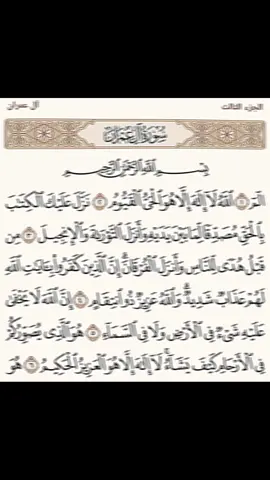 الجزء الثالث
آل عمران
سُورَةُ آلِ عِمْرَانَ
بِسْمِ اللَّهِ الرَّحْمَٰنِ الرَّحِيمِ
الٓمٓ ۝١ ٱللَّهُ لَآ إِلَٰهَ إِلَّا هُوَ ٱلْحَىُّ ٱلْقَيُّومُ ۝٢ نَزَّلَ عَلَيْكَ ٱلْكِتَٰبَ
بِٱلْحَقِّ مُصَدِّقًا لِّمَا بَيْنَ يَدَيْهِ وَأَنزَلَ ٱلتَّوْرَىٰةَ وَٱلْإِنجِيلَ ۝٣ مِن
قَبْلُ هُدًى لِّلنَّاسِ وَأَنزَلَ ٱلْفُرْقَانَ إِنَّ ٱلَّذِينَ كَفَرُوا۟ بِـَٔايَٰتِ ٱللَّهِ
لَهُمْ عَذَابٌ شَدِيدٌ وَٱللَّهُ عَزِيزٌ ذُو ٱنتِقَامٍ ۝٤ إِنَّ ٱللَّهَ لَا يَخْفَىٰ
عَلَيْهِ شَىْءٌ فِى ٱلْأَرْضِ وَلَا فِى ٱلسَّمَآءِ ۝٥ هُوَ ٱلَّذِى يُصَوِّرُكُمْ
فِى ٱلْأَرْحَامِ كَيْفَ يَشَآءُ لَآ إِلَٰهَ إِلَّا هُوَ ٱلْعَزِيزُ ٱلْحَكِيمُ ۝٦ هُوَ